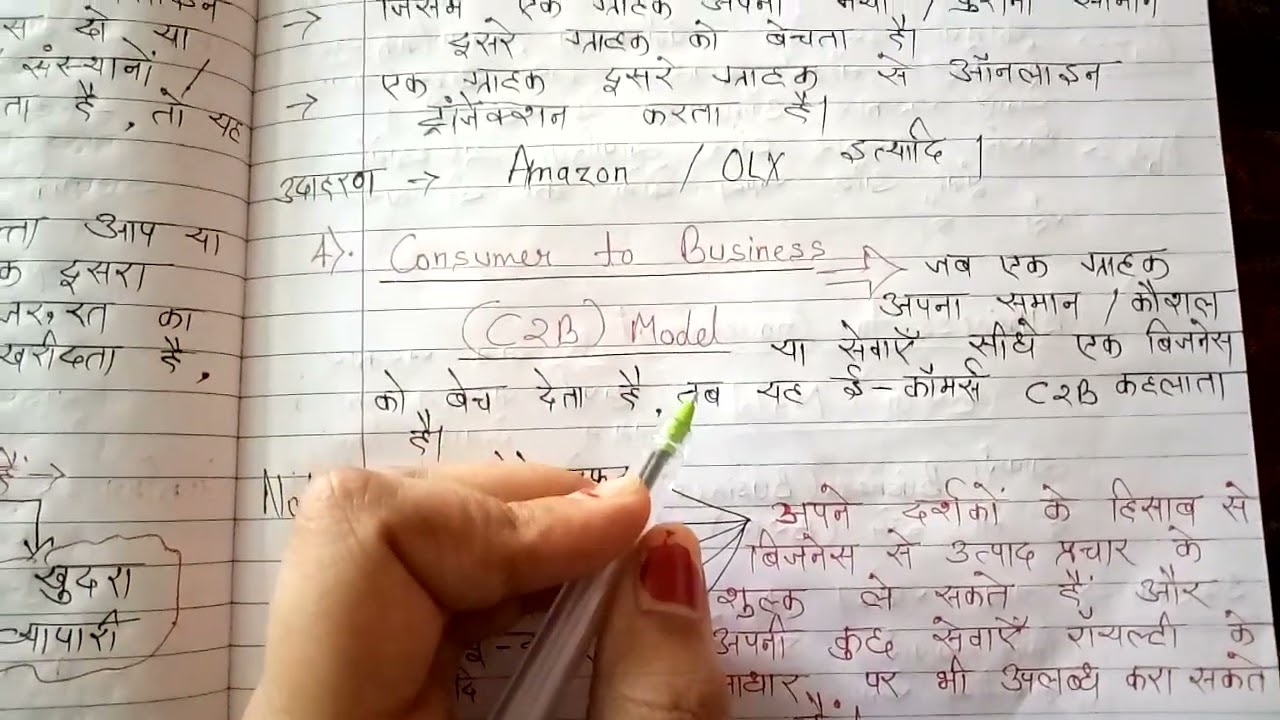 स दो या
संस्थानों /
ता है, तो यह
त्ता आप या
क दूसरा
जरूरत का
खरीदता है,
खुदरा
व्यापारी
→ जिसमें एक ग्राहक अपना नया / पुराना सामान
दूसरे ग्राहक को बेचता है।
→ एक ग्राहक दूसरे ग्राहक से ऑनलाइन
ट्रांजेक्शन करता है।
उदाहरण → Amazon / OLX इत्यादि |
4). Consumer to Business ⇒ जब एक ग्राहक
अपना समान / कौशल
(C2B) Model या सेवाएँ सीधे एक बिजनेस
को बेच देता है, तब यह ई-कॉमर्स C2B कहलाता
है।
अपने दर्शकों के हिसाब से
बिजनेस से उत्पाद प्रचार के
शुल्क ले सकते हैं और
अपनी कुछ सेवाएँ रॉयल्टी के
आधार पर भी उपलब्ध करा सकते
हैं।